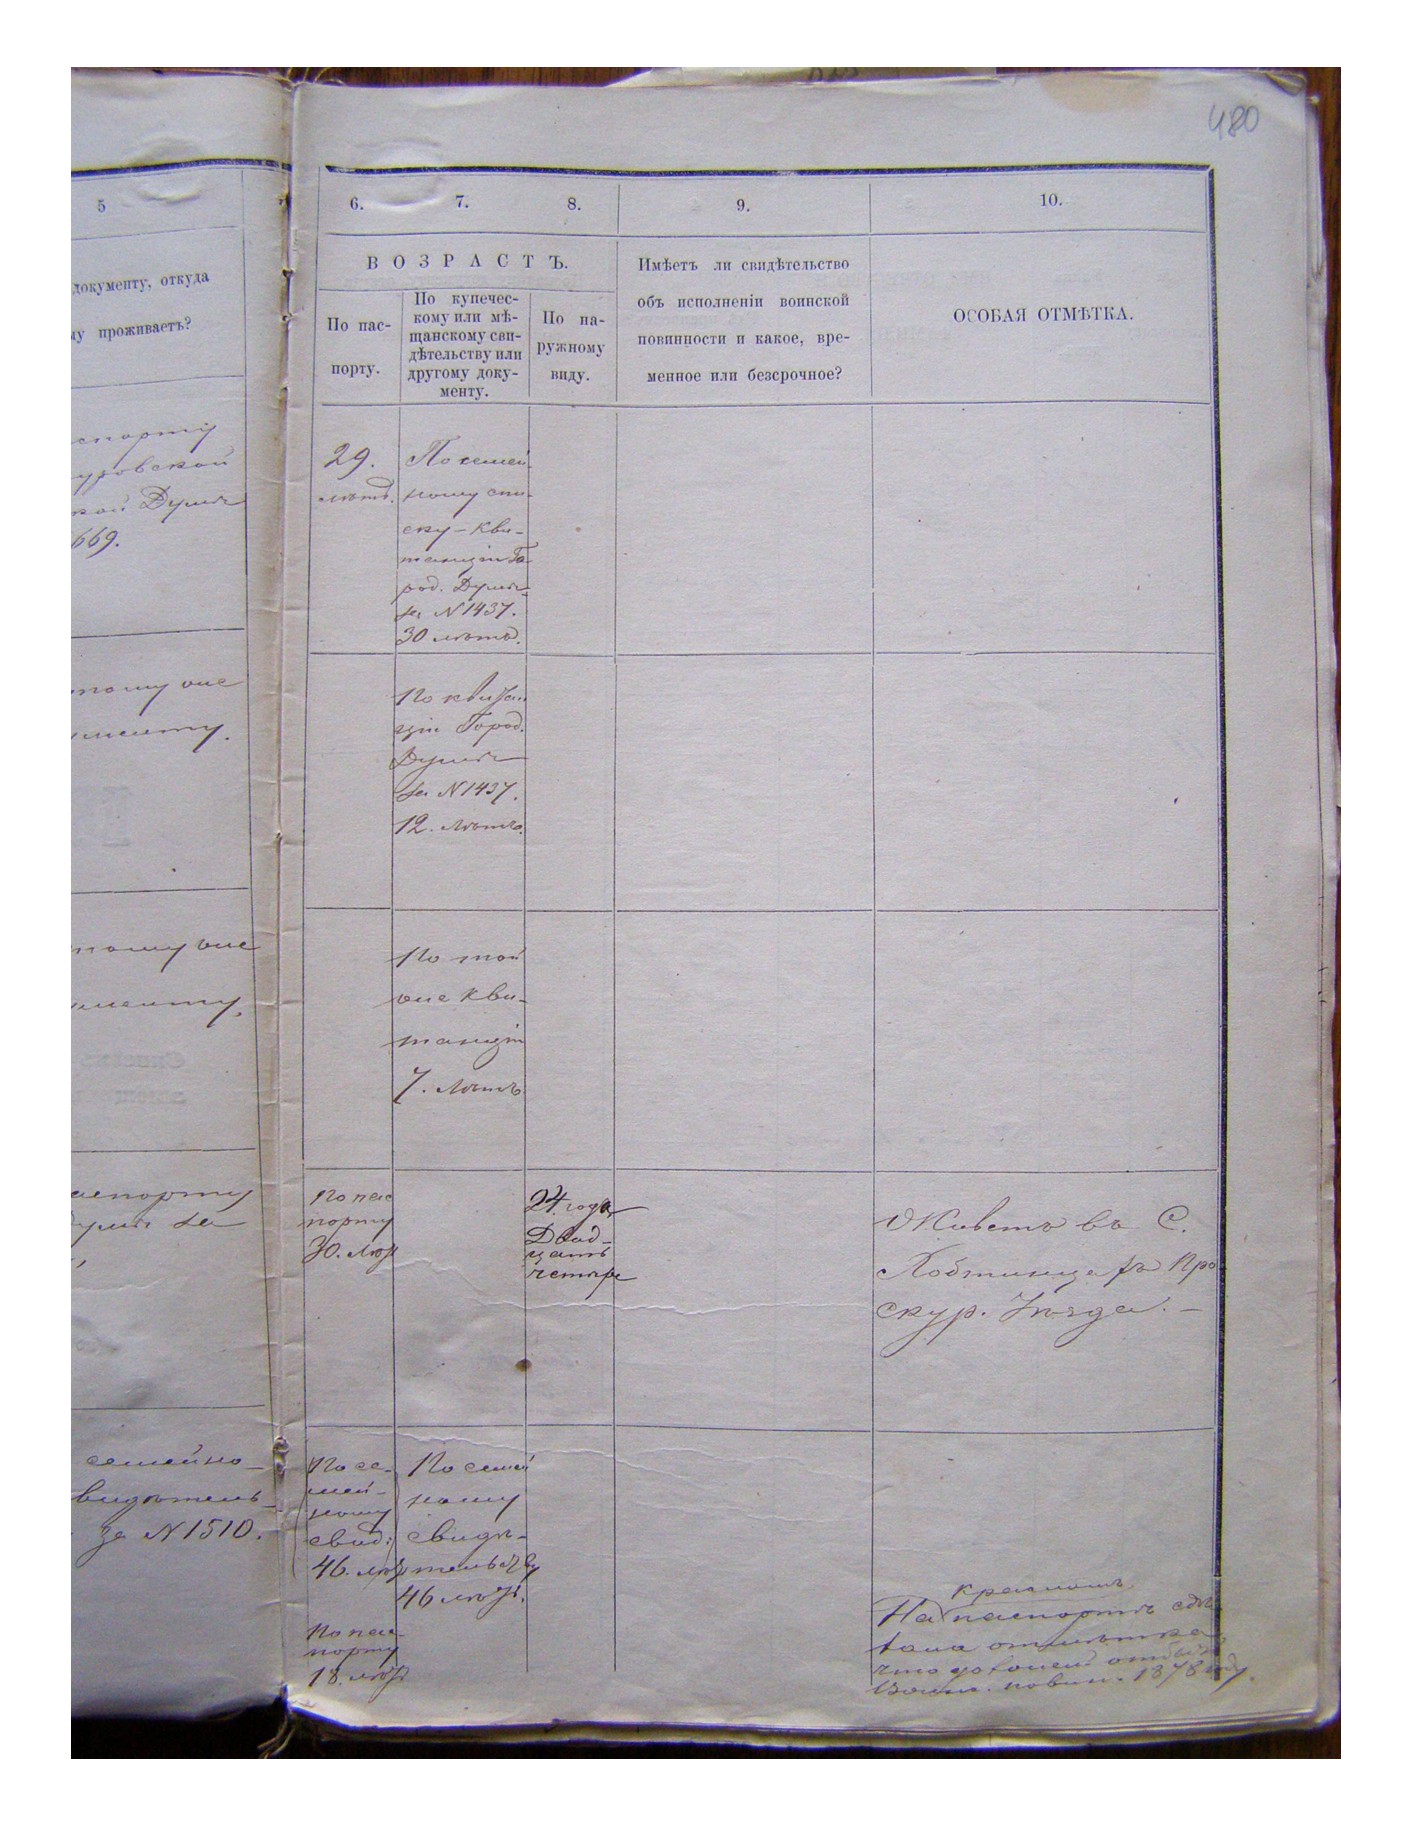 480
5
документу, откуда
му проживаетъ?
спорту
уровской
кой Думы
669.
тому же
ументу.
тому же
ументу,
аспорту
Думы за
семейно-
видѣтель-
за N 1510.
6. 7. 8. 9. 10.
ВОЗРАСТЪ.
По пас-
порту.
По купечес-
кому или мѣ-
щанскому сви-
дѣтельству или
другому доку-
менту.
По на-
ружному
виду.
Имѣетъ ли свидѣтельство
объ исполненіи воинской
повинности и какое, вре-
менное или безсрочное?
ОСОБАЯ ОТМѢТКА.
29.
лѣтъ.
По семей-
ному спи-
ску - кви-
танціи Го-
род. Думы
за N 1437.
30 лѣтъ.
По квитан
ціи Город.
Думы
за N 1437.
12. лѣтъ.
По той
же кви-
танціи
7. лѣтъ
По пас
порту
30. лѣт
24. года
Двад-
цать
четыре
Живетъ въ С.
Про
скур. Уѣзда. -
По се-
мей-
ному
свид:
46. лѣт
По пас-
порту
18. лѣт
По семей
ному
свидѣ-
тельству
46 лѣт.
На паспортѣ сдѣ
лана отмѣтка
что
Воин. повин. 1878 году.